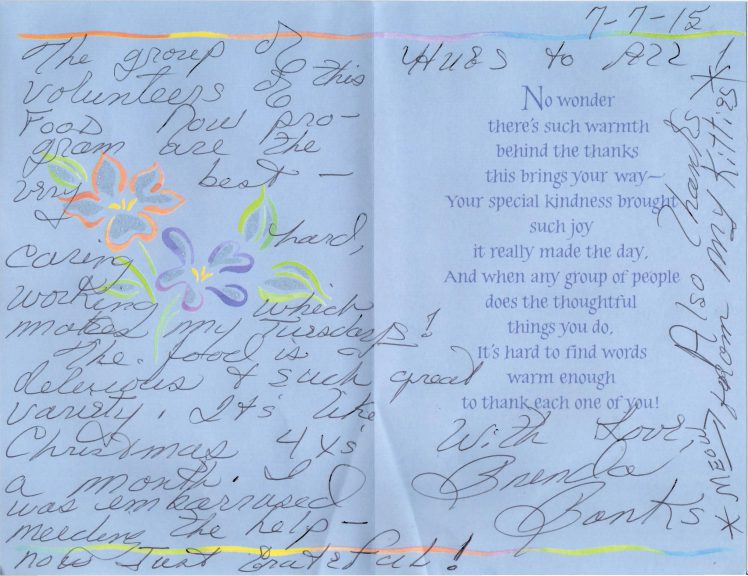 The group of
volunteers of this
Food Now pro-
gram are the
very best -
& hard,
caring
working which
makes my Tuesdays!
The food is
delecious & such great
variety. It's like
Christmas 4 xs'
a month. I
was embarrused
needing the help -
now Just Grateful!
7-7-15
HUGS to All
No wonder
there's such warmth
behind the thanks
this brings your way—
Your special kindness brought
such joy
it really made the day,
And when any group of people
does the thoughtful
things you do,
It's hard to find words
warm enough
to thank each one of you!
With Love,
Brenda
Banks
* MEOW Also Thanks *
from my Kitties!